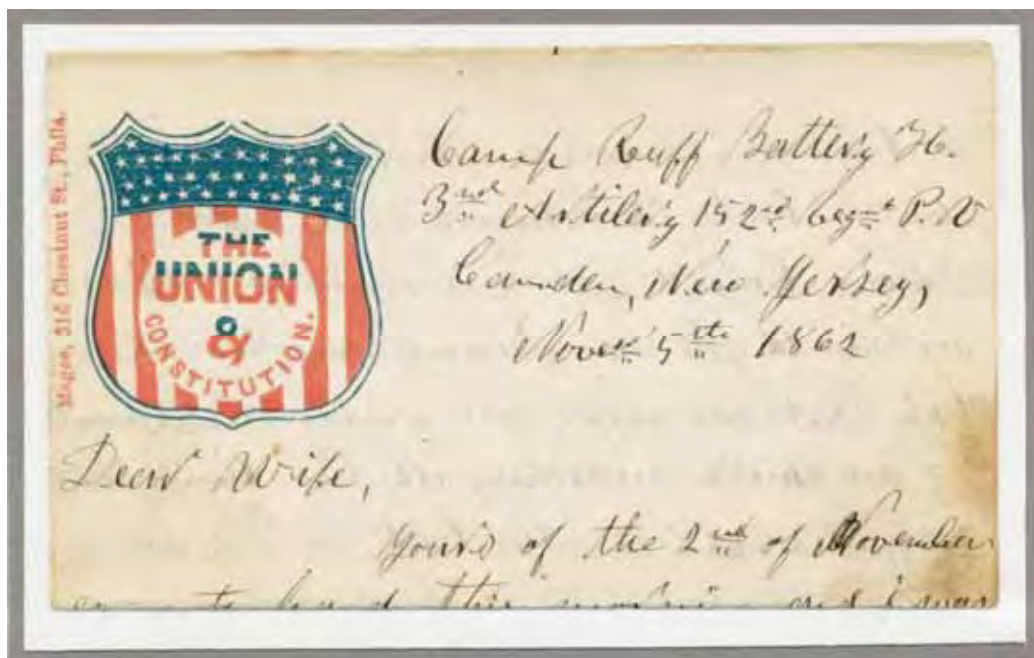 Magee, 316 Chestnut St., Phila.
THE
UNION
&
CONSTITUTION.
Camp Ruff Battery H.
3rd Artilery 152nd Regmt P.V
Camden, New Jersey,
5th 1862
Dear Wife,
yours of the 2nd of November
came to hand this morning and I was